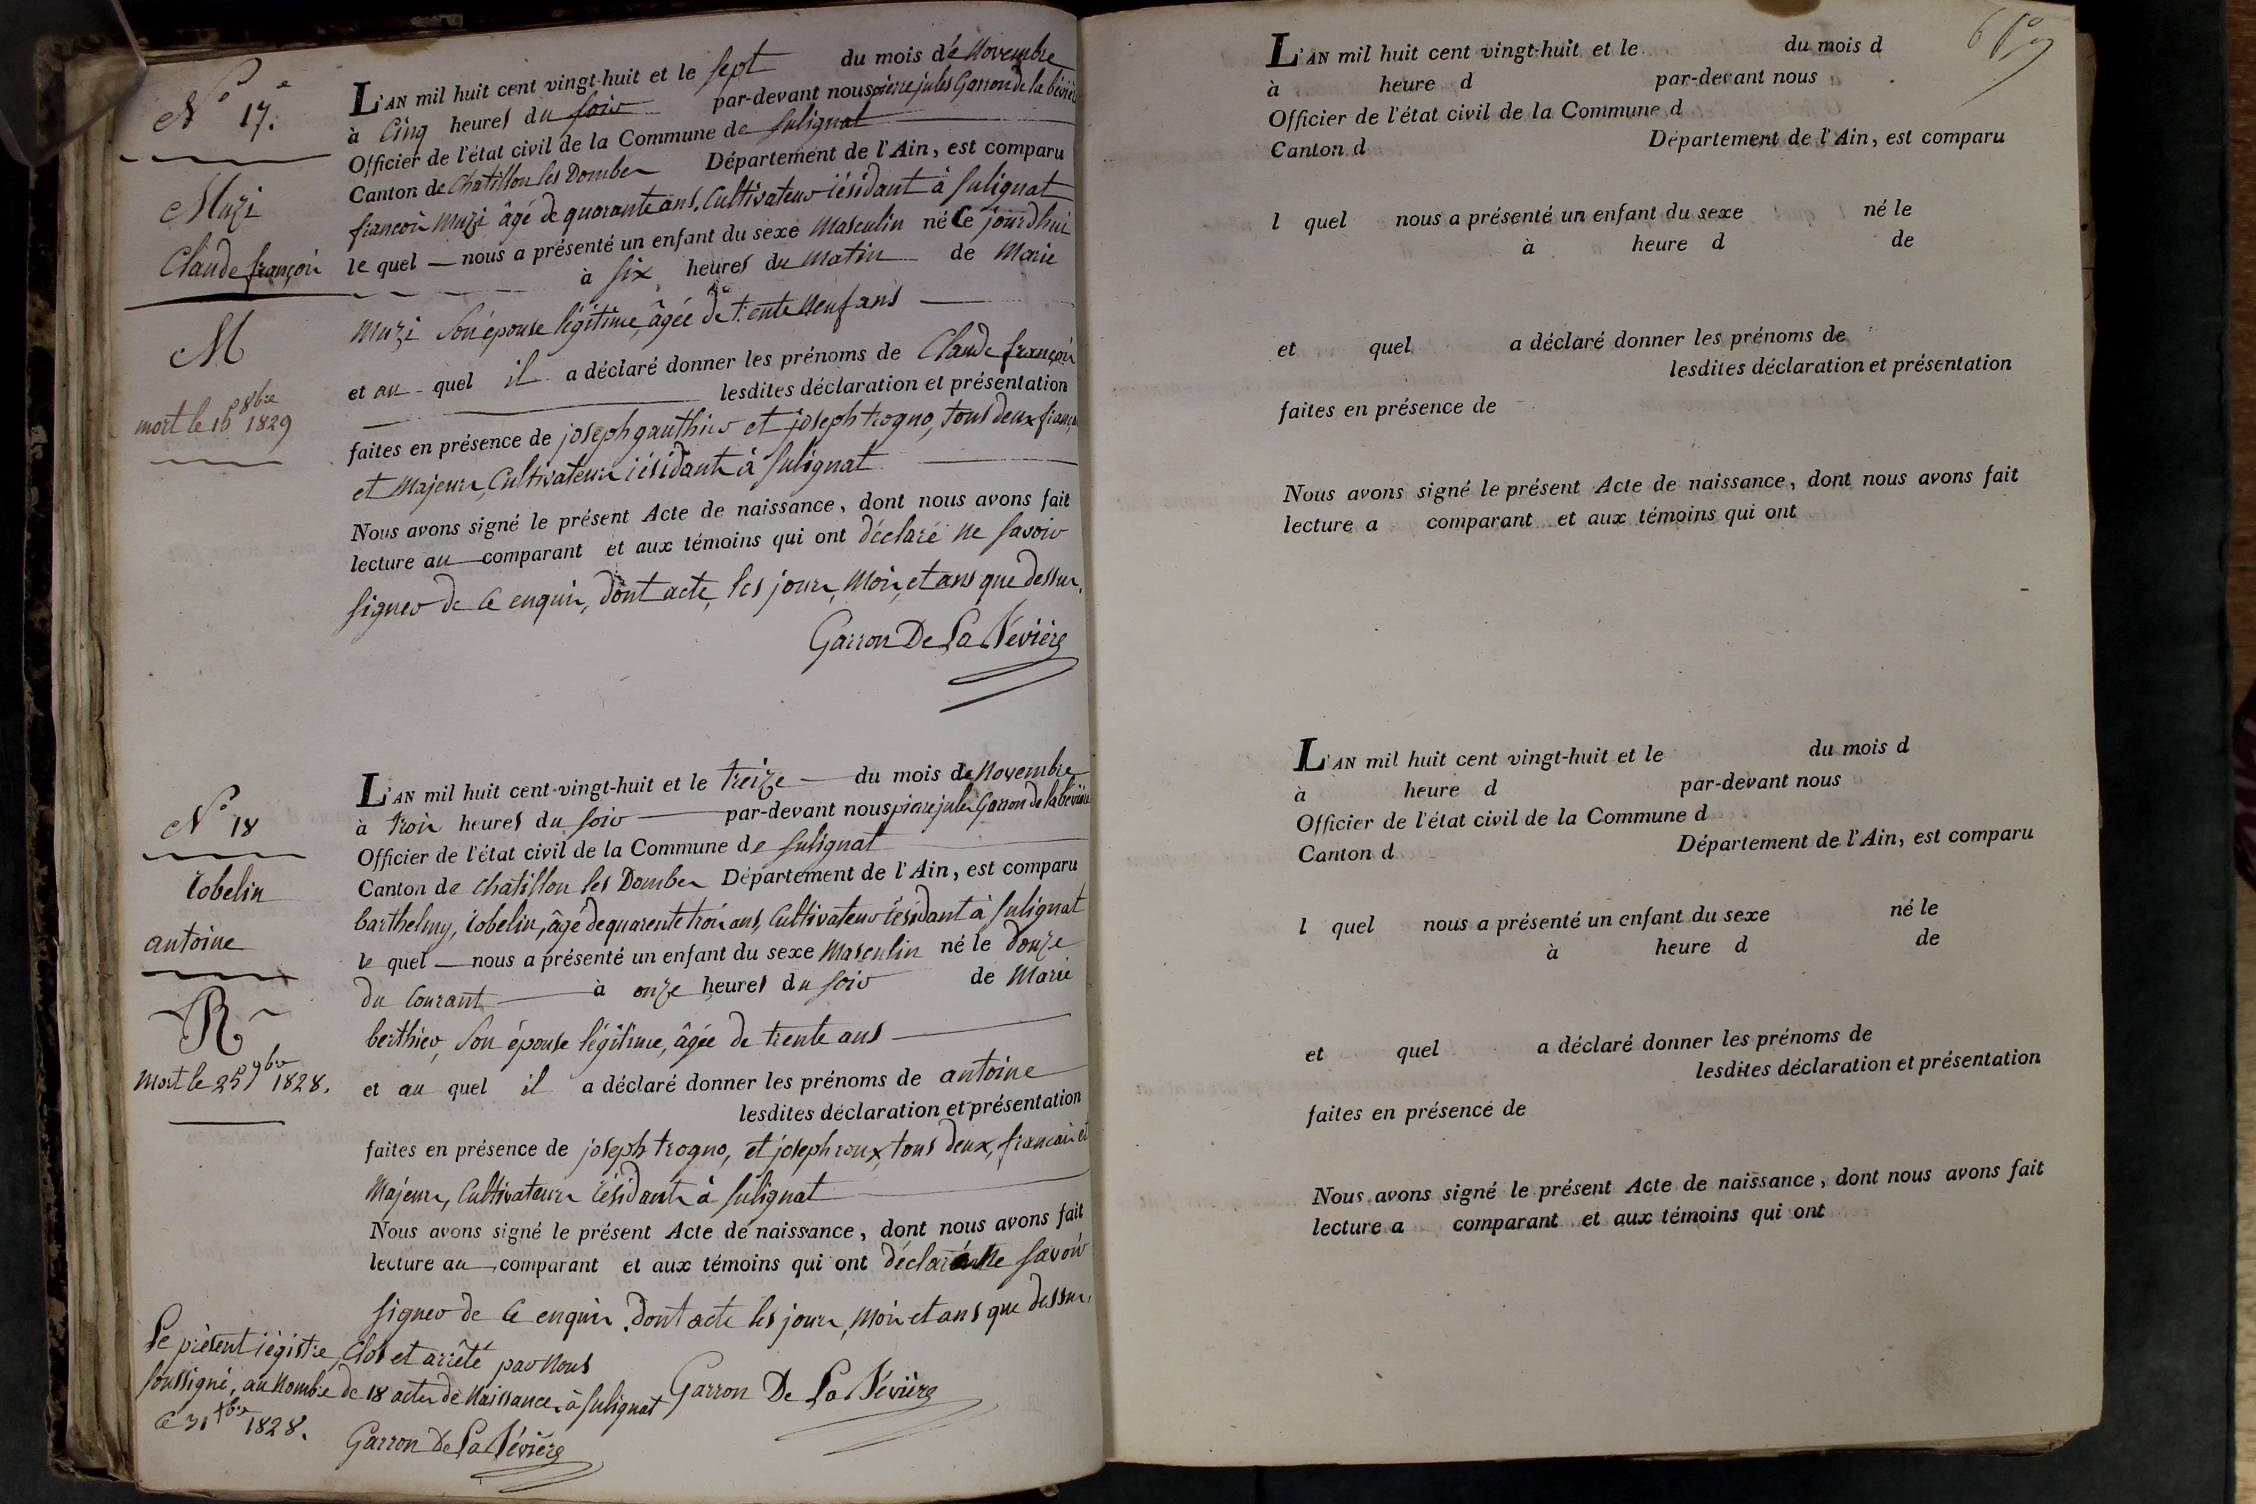 N° 17.e
Muzi
Claude françois
M
mort le 15 8bre 1829
L'AN mil huit cent vingt-huit et le sept du mois de Novembre
à Cinq heures du soir par-devant nous pierre jules Garron de la bévière
Officier de l'état civil de la Commune de Sulignat
Canton de Chatillon les Dombes Département de l'Ain, est comparu
françois Muzi âgé de quarante ans, Cultivateur résidant à Sulignat
le quel nous a présenté un enfant du sexe Masculin né Ce jourdhui
à six heures du Matin de Marie
Muzi son épouse légitime, âgée de trente Neuf ans
et au quel il a déclaré donner les prénoms de Claude françois
lesdites déclaration et présentation
faites en présence de joseph gauthier et joseph trogno, tous deux français
et Majeurs, Cultivateurs résidants à Sulignat
Nous avons signé le présent Acte de naissance, dont nous avons fait
lecture au comparant et aux témoins qui ont déclaré ne savoir
signer de Ce enquis, dont acte, les jour, Mois, et ans que dessus.
Garron De La Bévière
N° 18
Cobelin
antoine
R
Mort le 25 9bre 1828.
L'AN mil huit cent vingt-huit et le treize du mois de Novembre
à trois heures du soir par-devant nous pierre jules Garron de la bévière
Officier de l'état civil de la Commune de Sulignat
Canton de Chatillon les Dombes Département de l'Ain, est comparu
barthelmy, Cobelin, âgé de quarente trois ans, Cultivateur résidant à Sulignat
le quel nous a présenté un enfant du sexe Masculin né le douze
du Courant à onze heures du soir de Marie
berthier, son épouse légitime, âgée de trente ans
et au quel il a déclaré donner les prénoms de antoine
lesdites déclaration et présentation
faites en présence de joseph trogno, et joseph roux, tous deux, francais et
Majeurs, Cultivateurs résidants à Sulignat
Nous avons signé le présent Acte de naissance, dont nous avons fait
lecture au comparant et aux témoins qui ont déclaré Ne savoir
signer de Ce enquis, dont acte les jour, Mois et ans que dessus.
Garron De La Bévière
Le présent régistre, Clos et arrêté par Nous
soussigné, au Nombre de 18 actes de Naissances à Sulignat
Ce 31 Xbre 1828.
Garron De La Bévière
L'AN mil huit cent vingt-huit et le du mois d
à heure d par-devant nous
Officier de l'état civil de la Commune d
Canton d Département de l'Ain, est comparu
l quel nous a présenté un enfant du sexe né le
à heure d de
et quel a déclaré donner les prénoms de
lesdites déclaration et présentation
faites en présence de
Nous avons signé le présent Acte de naissance, dont nous avons fait
lecture a comparant et aux témoins qui ont
L'AN mil huit cent vingt-huit et le du mois d
à heure d par-devant nous
Officier de l'état civil de la Commune d
Canton d Département de l'Ain, est comparu
l quel nous a présenté un enfant du sexe né le
à heure d de
et quel a déclaré donner les prénoms de
lesdites déclaration et présentation
faites en présence de
Nous avons signé le présent Acte de naissance, dont nous avons fait
lecture a comparant et aux témoins qui ont